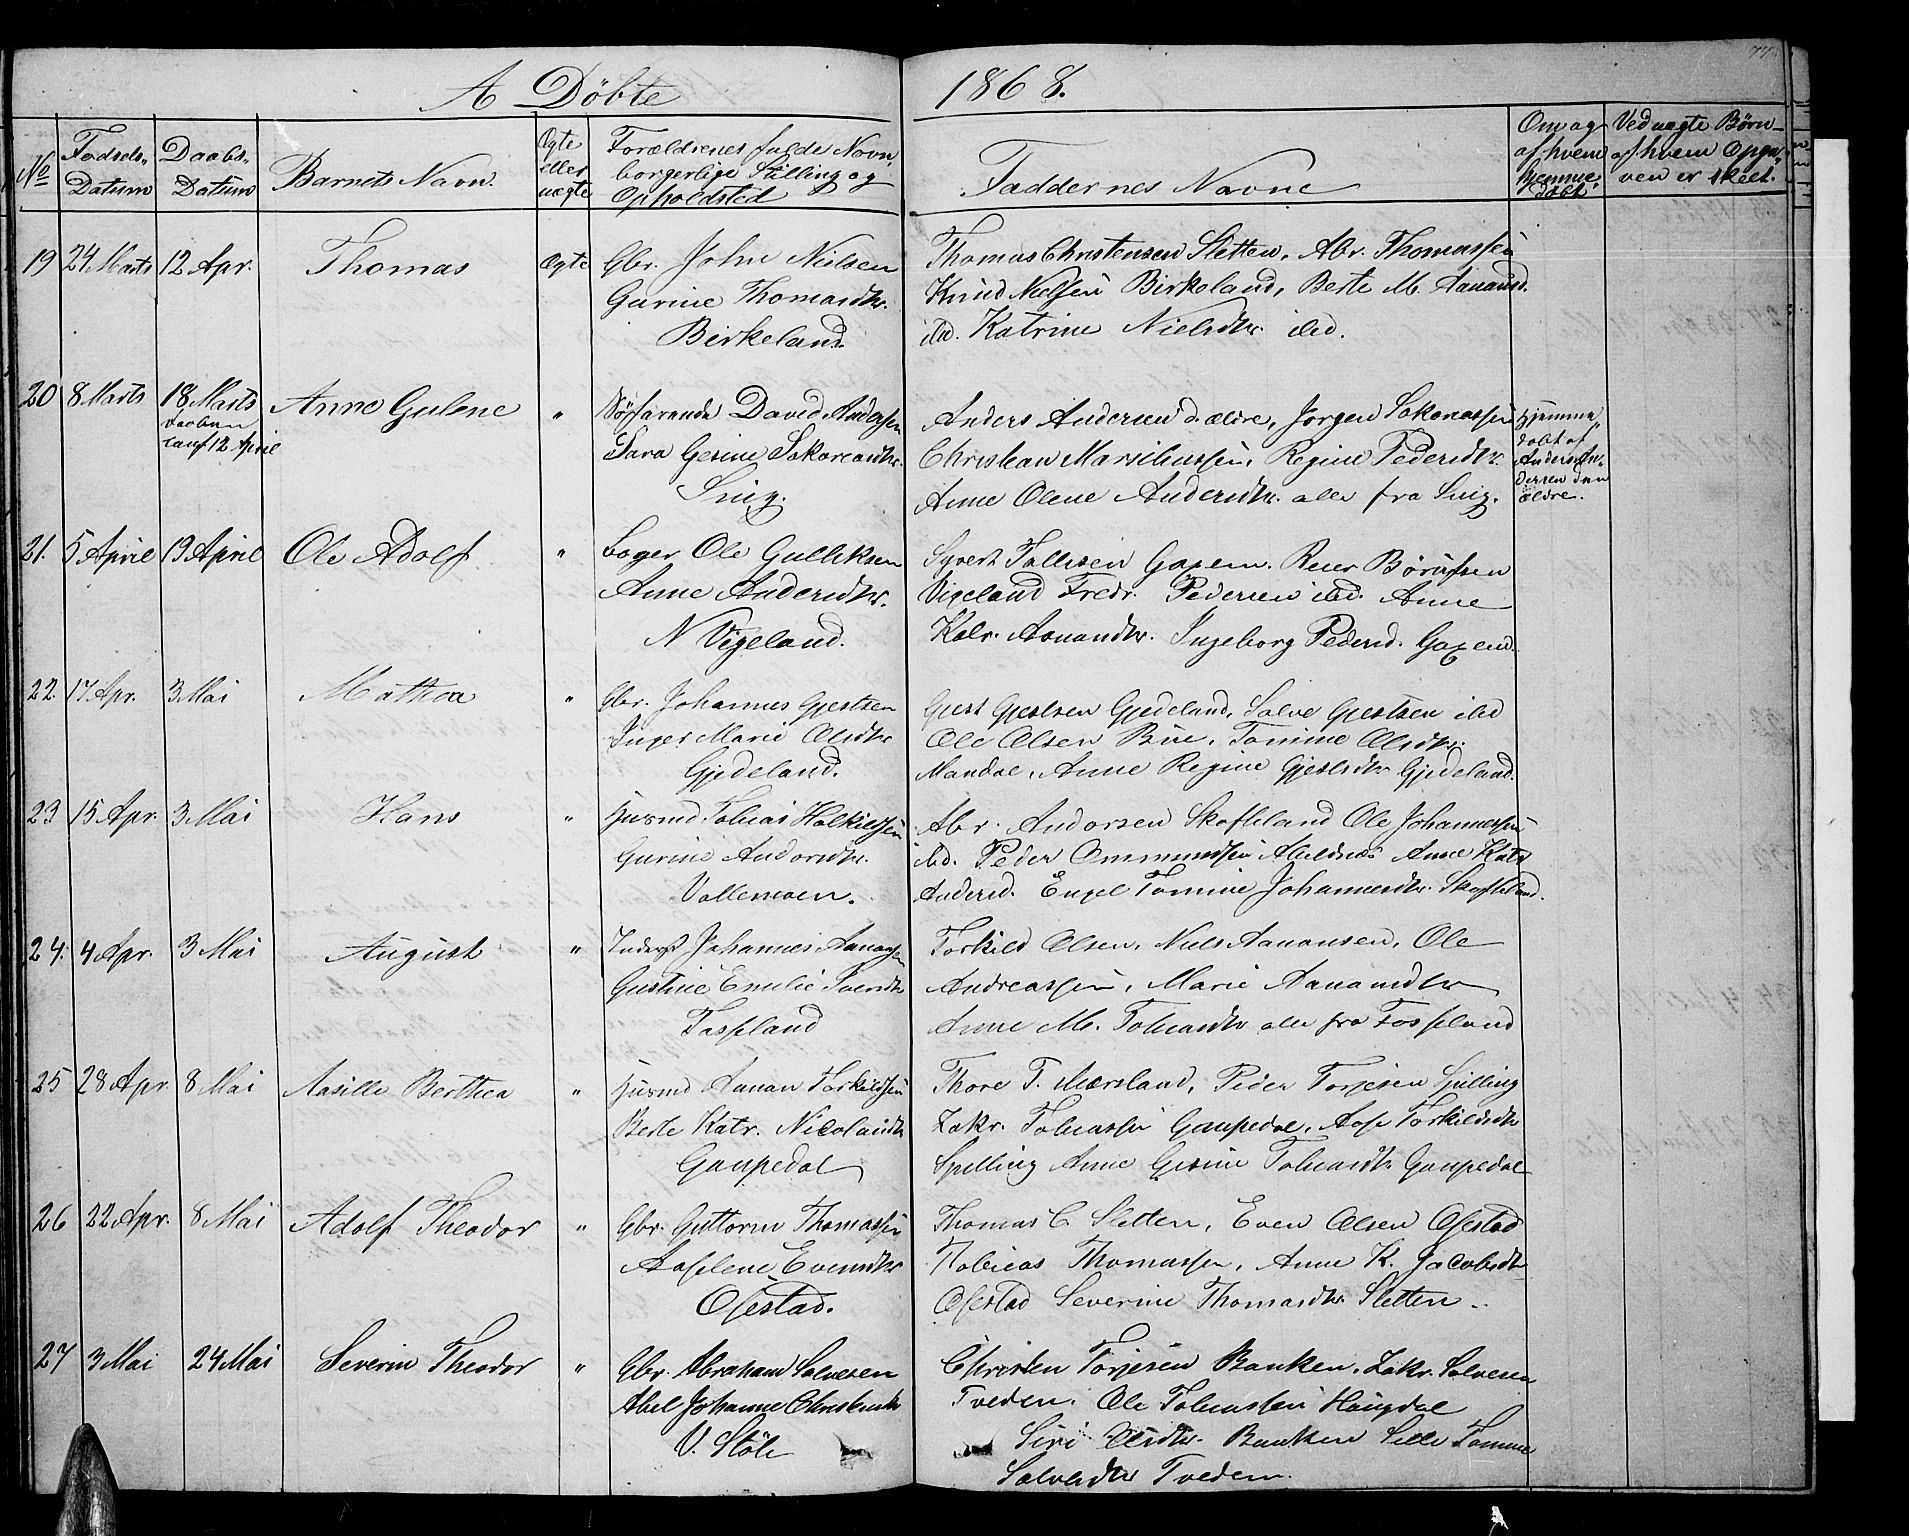 77
A Döbte 1868.
No
Fødsels-
Datum
Daabs-
Datum
Barnets Navn.
Ægte
eller
uægte
Forældrenes fulde Navn,
borgerlige Stilling og
Opholdsted
Faddernes Navne
Om og
af hvem
hjemme
døbt
Ved uægte Børn
af hvem Opga-
ven er skeet.
19 24 Marts 12 Apr. Thomas Ægte Gbr. John Nielsen
Gurine Thomasdtr.
Birkeland.
Thomas Christensen Sletten, Abr. Thomassen
Knud Nielsen Birkeland, Berte M. Aanansd.
ibd. Katrine Nielsdtr ibd.
20 8 Marts 18 Marts Anne Gulene " Søfarende David Andersen
Sara Gesine Sakariasdtr.
Snig.
12 April
Anders Andersen d. ældre, Jørgen Sakariassen
Christian Marselius­sen, Regine Pedersdtr.
Anne Olene Andersdtr. alle fra Snig.
Hjemme
døbt af
Anders An-
dersen den
ældre.
21. 5 April 19 April Ole Adolf " Ole Gulliksen
Anne Andersdtr.
N Vigeland.
Syvert Tallesen Gaxem. Reier Børufsen
Vigeland Fredr. Pedersen ibd. Anne
Katr. Aanandtr. Ingeborg Pedersd. Gaxem.
22. 17 Apr. 3 Mai Mathea " Gbr. Johannes Gjestsen
Inger Marie Olsdtr
Gjedeland.
Gjest Gjestsen Gjedeland, Salve Gjestsen ibd
Ole Olsen Bue, Tomine Olsdtr.
Mandal, Anne Regine Gjestsdtr Gjedeland.
23 15 Apr. 3 Mai Hans " Husmd Tobias Halkildsen
Gurine Andorsdtr.
Vallemoen.
Abr. Andorsen Skofteland Ole Johannessen
ibd. Peder Ommundsen Anne Katr
Andersd. Engel Tomine Johannesdtr. Skofteland.
24. 4 Apr. 3 Mai August " Inderst Johannes Aanansen
Gustine Emilie Svendtr
Fasseland
Torkild Olsen, Niels Aanansen, Ole
Andreassen, Marie Aanandtr
Anne M. Tobiasdtr alle fra Fosseland
25 28 Apr 8 Mai Aasille Berthea " Husmd Aanan Torkildsen
Berte Katr. Nicolaidtr
Gaupedal
Thore T. Mærsland, Peder Torjesen Spilling
Zakr. Tobiassen Gaupedal, Aase Torkildsdtr
Spilling Anne Gesine Tobiasdtr Gaupedal
26 22 Apr. 8 Mai Adolf Theodor " Gbr. Guttorm Thomassen
Aaselene Evensdtr
Ofestad.
Thomas C. Sletten, Even Olsen Ofestad
Tobias Thomassen, Anne K. Jacobsdtr
Ofestad Severine Thomasdtr Sletten.
27 3 Mai 24 Mai Severin Theodor " Gbr. Abraham Salvesen
Abel Johanne Christensdtr
V. Støle
Christen Torjesen Banken, Zakr. Salvesen
Tveden. Ole Tobiassen Haugdal
Siri Olsdtr. Banken Sille Tomine
Salvesdtr Tveden.